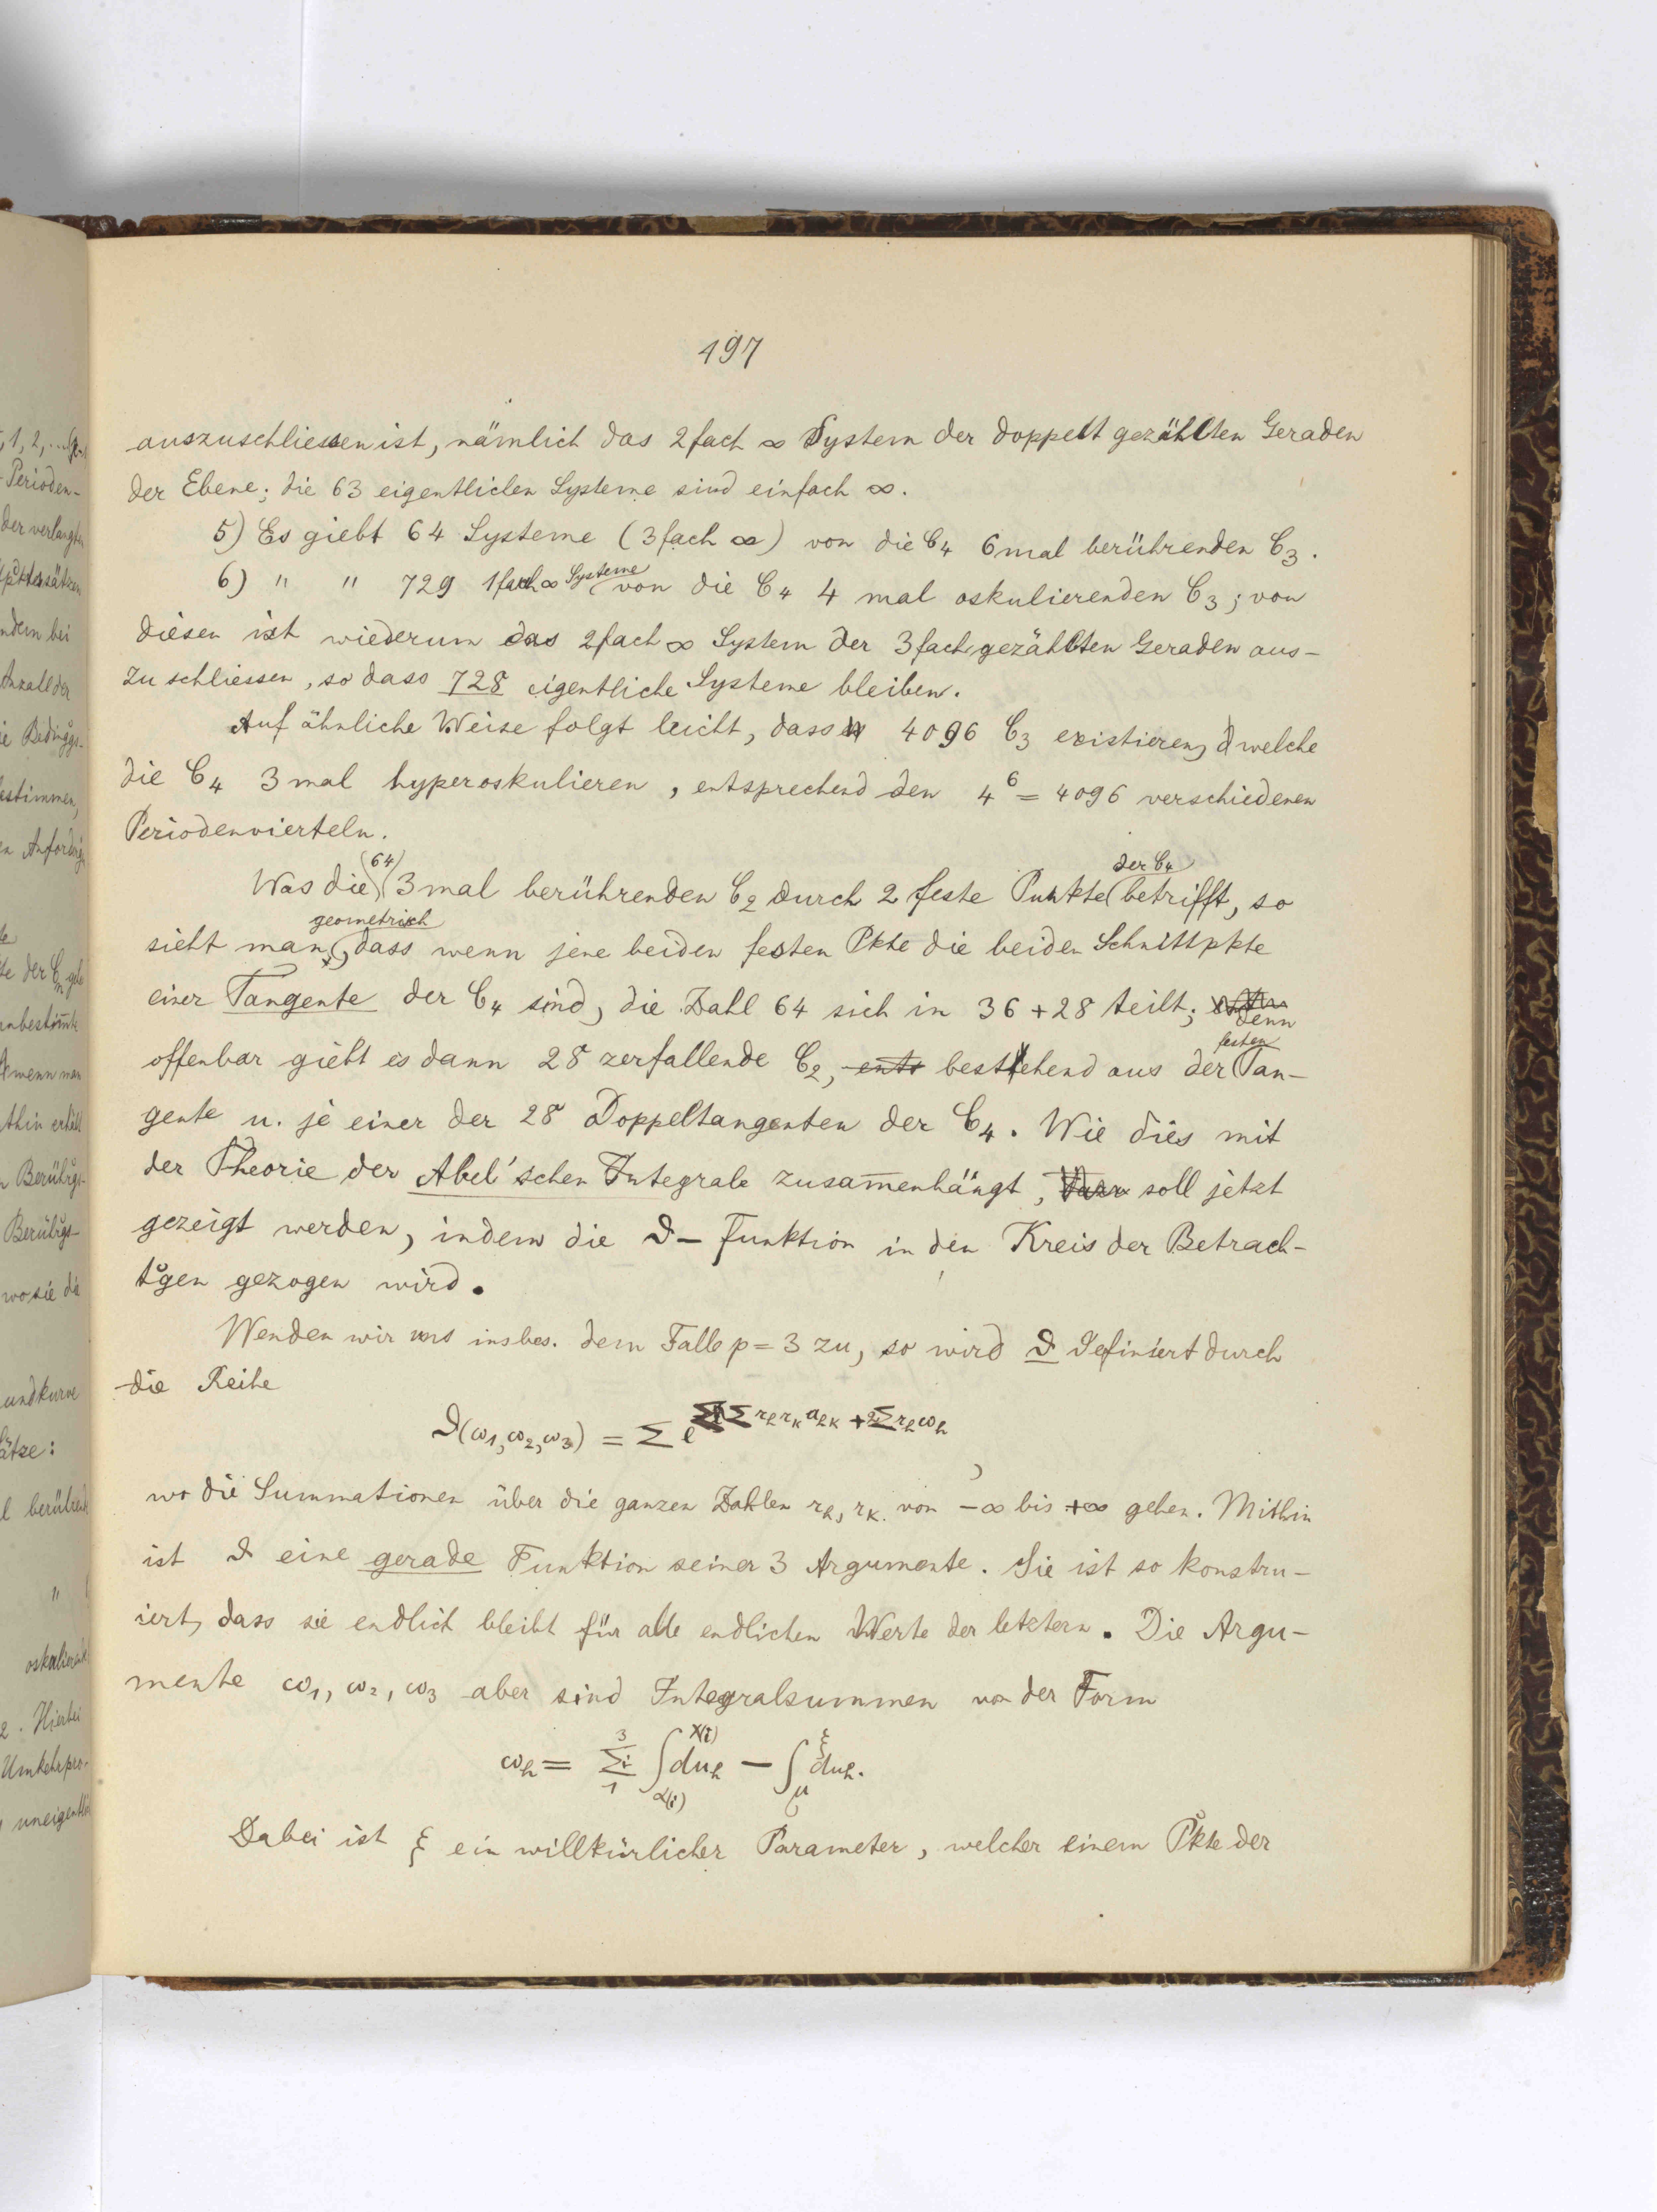 197
auszuschliessen ist, nämlich das 2fach ∞ System der doppelt gezählten Geraden
der Ebene; die 63 eigentlichen Systeme sind einfach ∞.
5) Es giebt 64 Systeme (3fach ∞) von die C₄ 6mal berührenden C₃.
6) " " 729 1fach ∞ Systeme von die C₄ 4 mal oskulierenden C₃; von
diesen ist wiederum das 2fach ∞ System der 3fach gezählten Geraden aus-
zuschliessen, so dass 728 eigentliche Systeme bleiben.
Auf ähnliche Weise folgt leicht, dass 4096 C₃ existieren, welche
die C₄ 3mal hyperoskulieren, entsprechend den 4⁶ = 4096 verschiedenen
Periodenvierteln.
Was die (64) 3mal berührenden C₂ durch 2 feste Punkte der C₄ betrifft, so
sieht man geometrisch, dass wenn jene beiden festen Pkte die beiden Schnittpkte
einer Tangente der C₄ sind, die Zahl 64 sich in 36+28 teilt; denn
offenbar giebt es dann 28 zerfallende C₂, bestehend aus der festen Tan-
gente u. je einer der 28 Doppeltangenten der C₄. Wie dies mit
der Theorie der Abel'schen Integrale zusam̅enhängt, soll jetzt
gezeigt werden, indem die ϑ-Funktion in den Kreis der Betrach-
tg̊en gezogen wird.
Wenden wir uns insbes. dem Falle p=3 zu, so wird ϑ definiert durch
die Reihe
ϑ(ω₁,ω₂,ω₃) = Σ e^{ΣΣ r_h r_k a_{hk} + 2Σ r_h ω_h},
wo die Summationen über die ganzen Zahlen r_h, r_k von -∞ bis +∞ gehen. Mithin
ist ϑ eine gerade Funktion seiner 3 Argumente. Sie ist so konstru-
iert, dass sie endlich bleibt für alle endlichen Werte der letztern. Die Argu-
mente ω₁, ω₂, ω₃ aber sind Integralsummen von der Form
ω_h = Σ_i₁³ ∫_{α(i)}^{x(i)} du_h - ∫_μ^ξ du_h.
Dabei ist ξ ein willkürlicher Parameter, welcher einem Pkte der